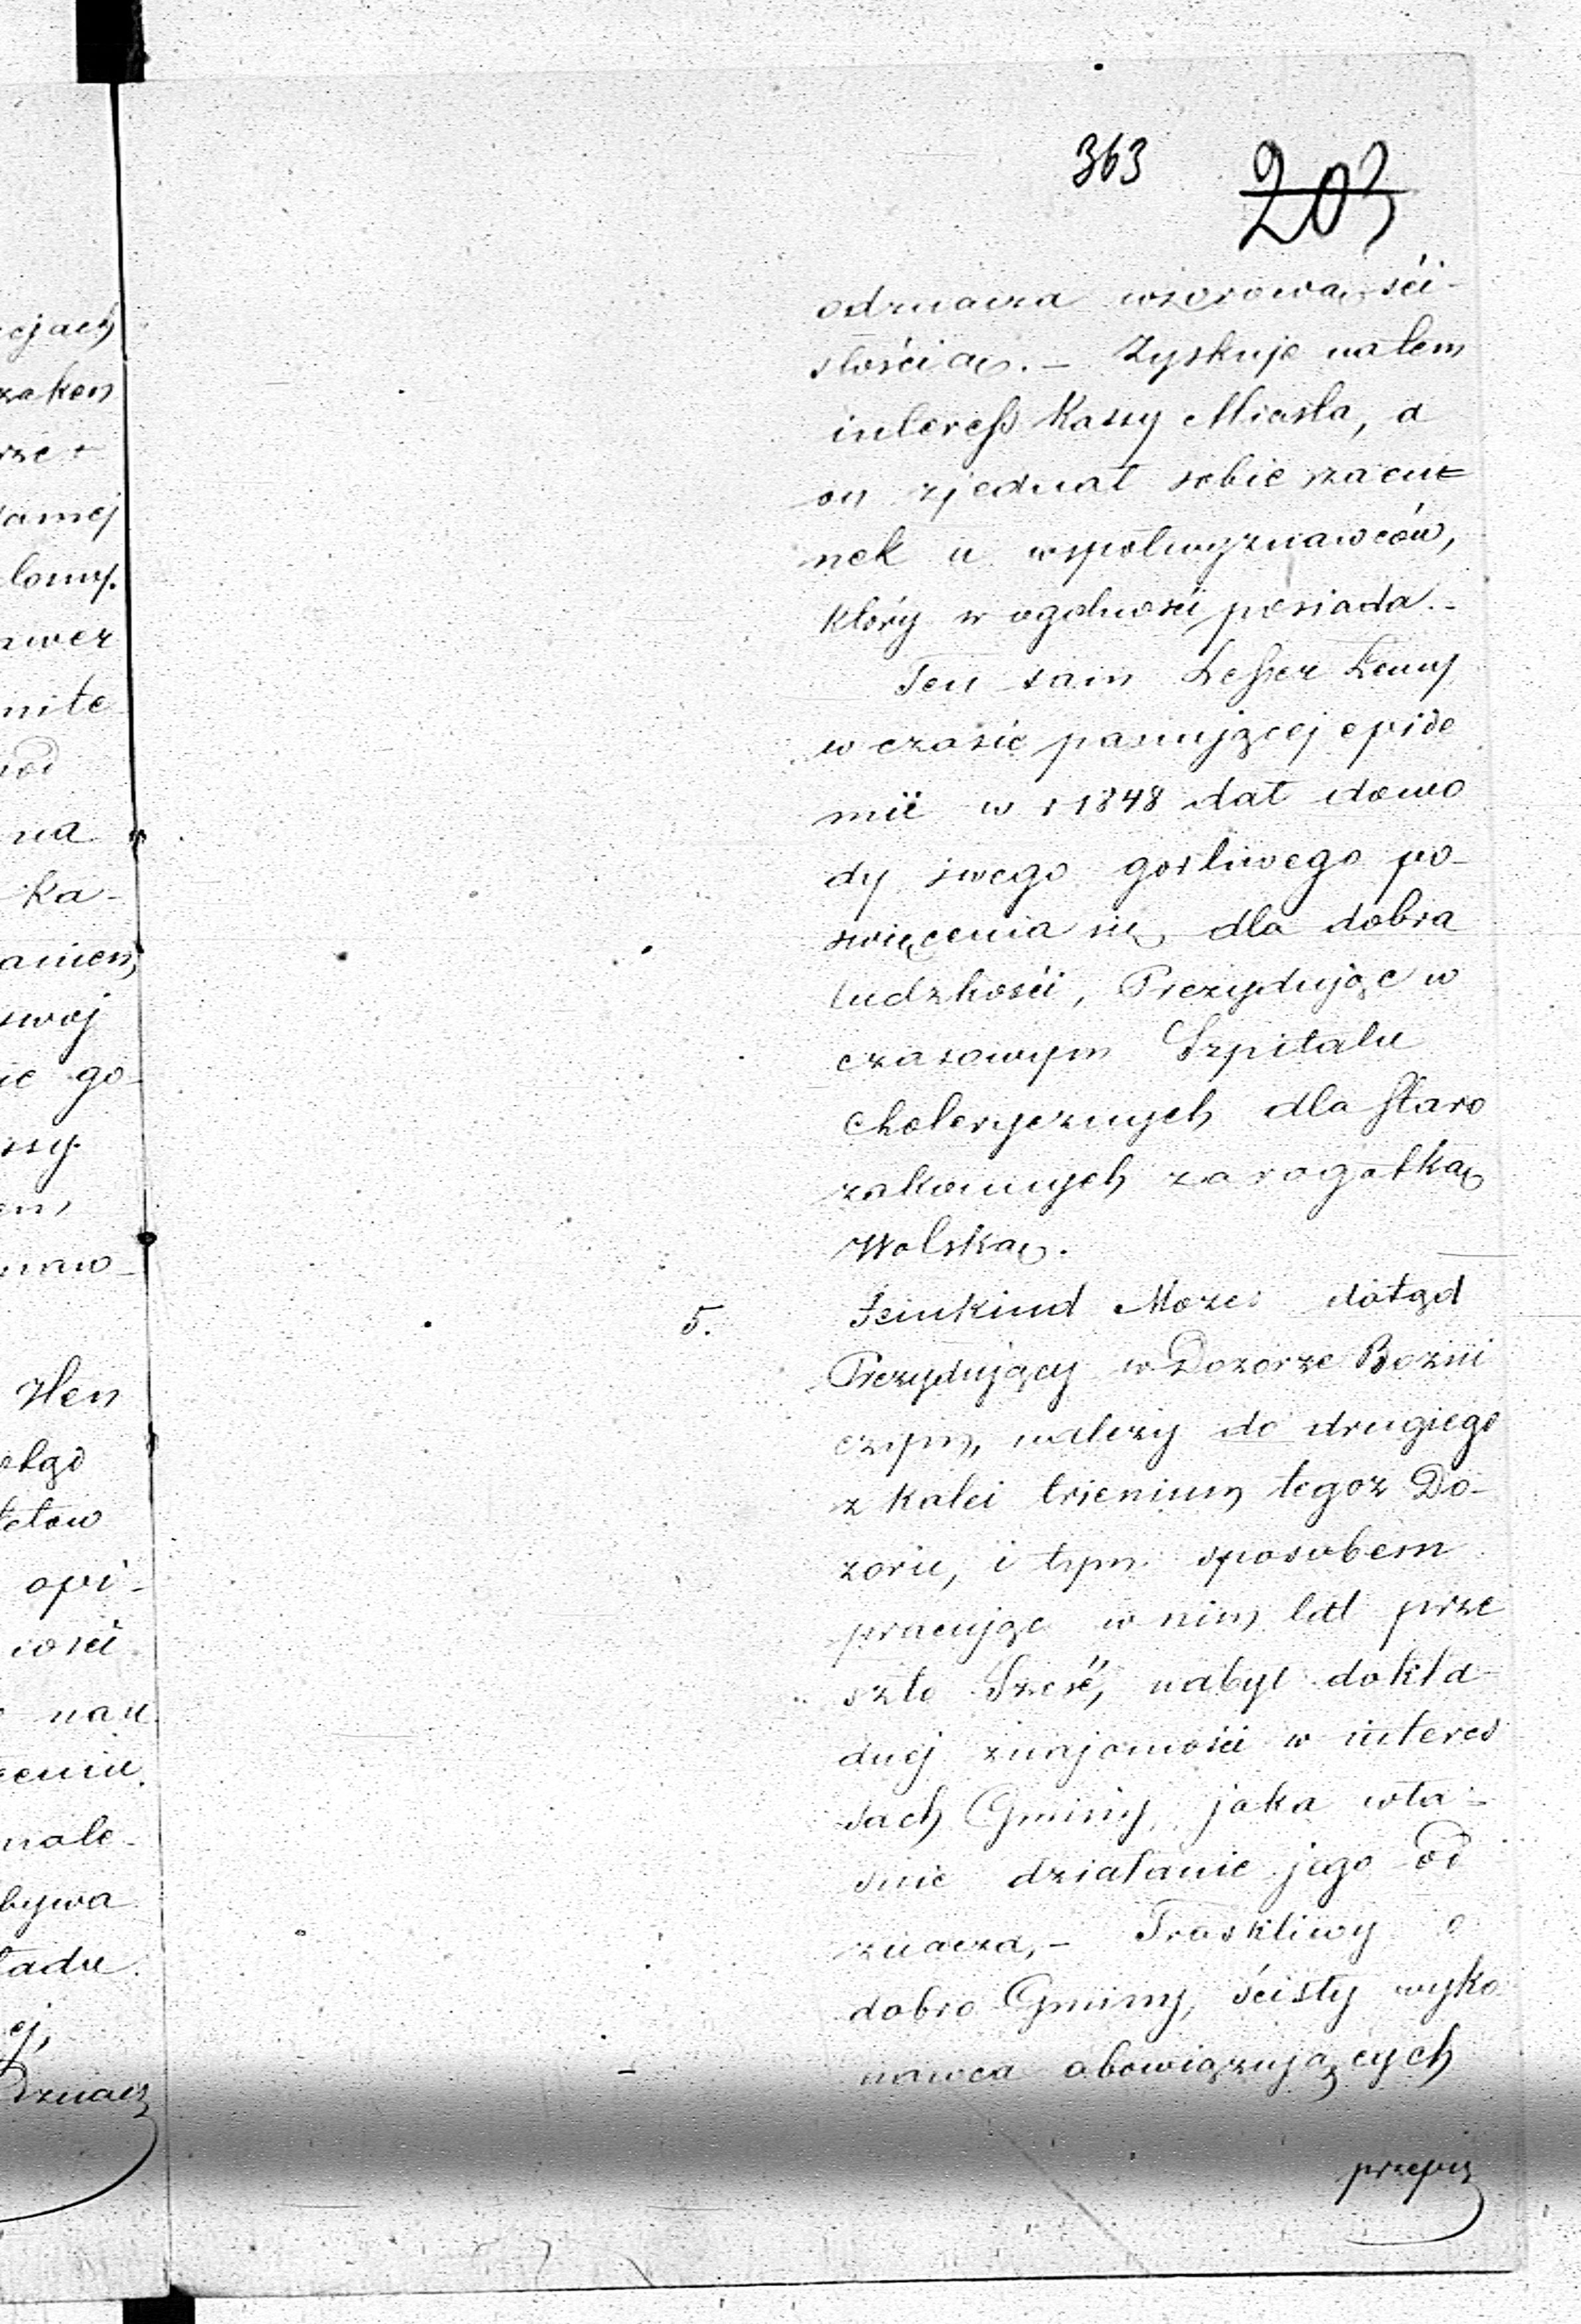 363 203
odznacza wzorową ści-
słością. – Zyskuje na tem
interess Kassy Miasta, a
on zjednał sobie szacu=
nek u wspołwyznawców,
który w ogolności posiada. –
Ten sam Lesser Lewy
w czasie panującej epide
mii w r 1848 dał dowo
dy swego gorliwego po-
swięcenia się dla dobra
ludzkości, Prezydując w
czasowym Szpitalu
cholerycznych dla Staro
zakonnych za rogatką
Wolską.
5. Feinkind Mozes dotąd
Prezydujący w Dozorze Bozni
czym, należy do drugiego
z kolei trienium tegoz Do-
zoru, i tym sposobem
pracując w nim lat prze
szło Sześć, nabył dokła-
dnej znajomości w interes
sach Gminy, jaka wła-
snie działanie jego od
znacza, – Troskliwy o
dobro Gminy, ścisły wyko
nawca obowiązujących
przepis
cjach
zaken
rze
samej
nite
od
na
Ka-
swoj
ie go-
Hen
opi-
ności
nau
nale-
bywa
ładu
ej,